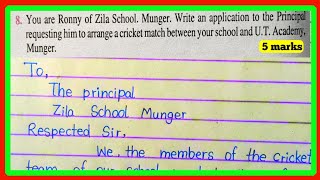 8. You are Ronny of Zila School. Munger. Write an application to the Principal
requesting him to arrange a cricket match between your school and U.T. Academy,
Munger.
5 marks
To,
The principal
Zila School Munger
Respected Sir,
We, the members of the cricket
team of our school